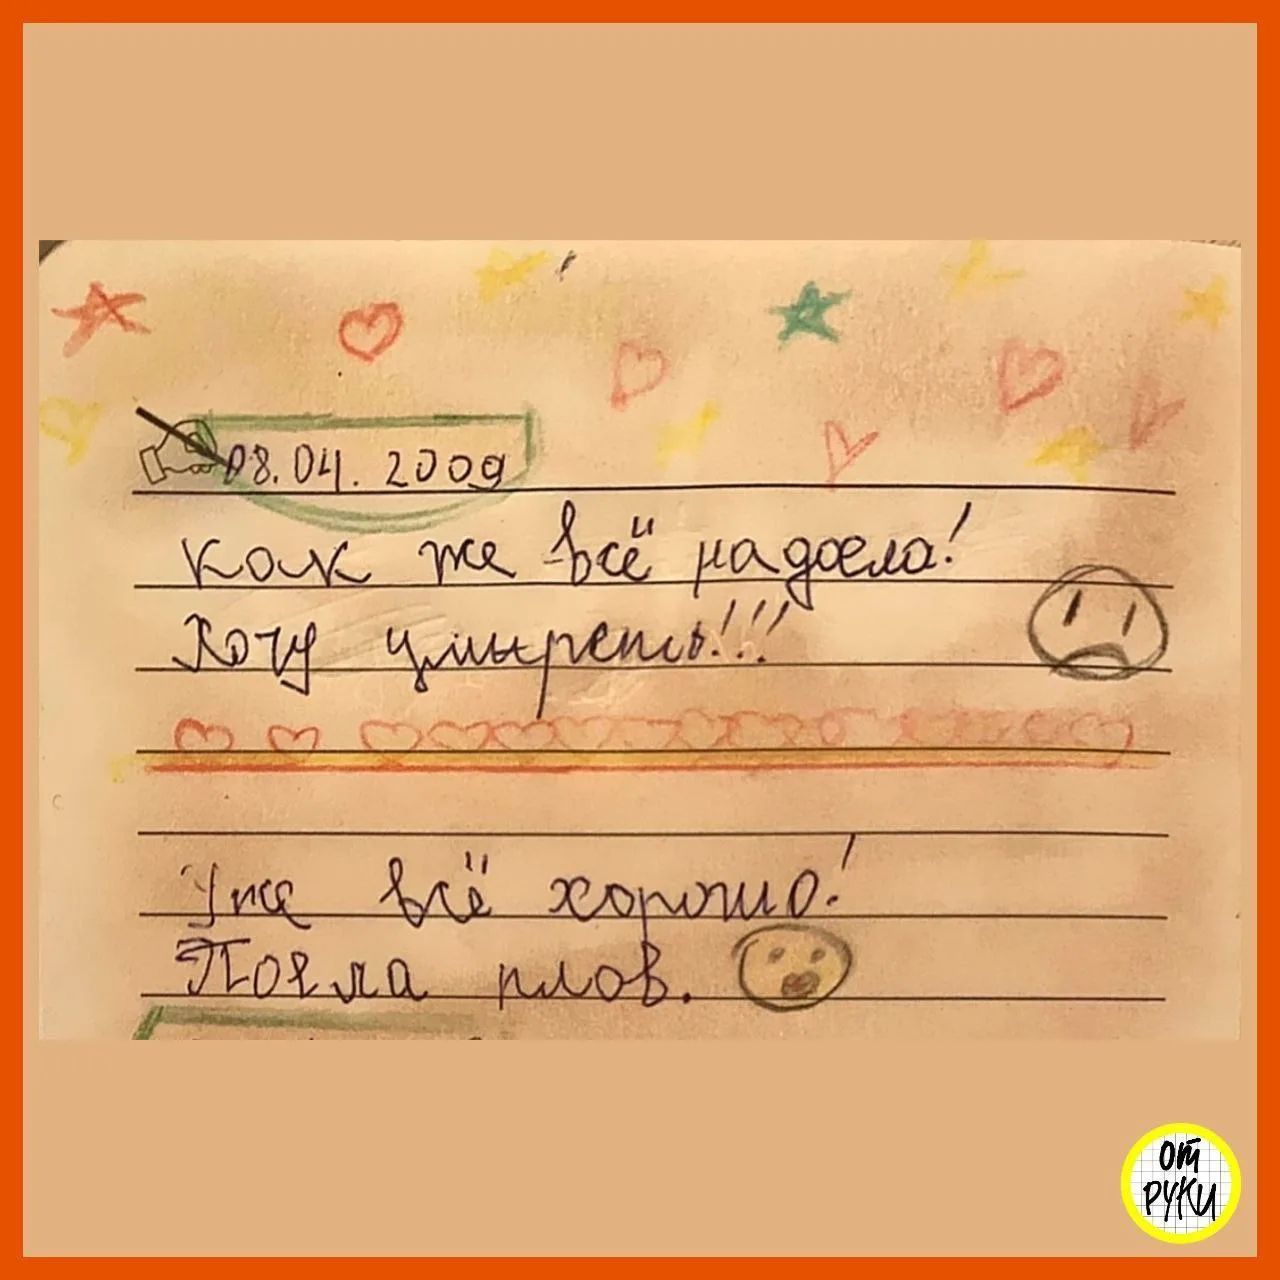 08.04.2009
Как же всё надоело!
Хочу умыреть!!!
Уже всё хорошо!
Поела плов.
от
руки